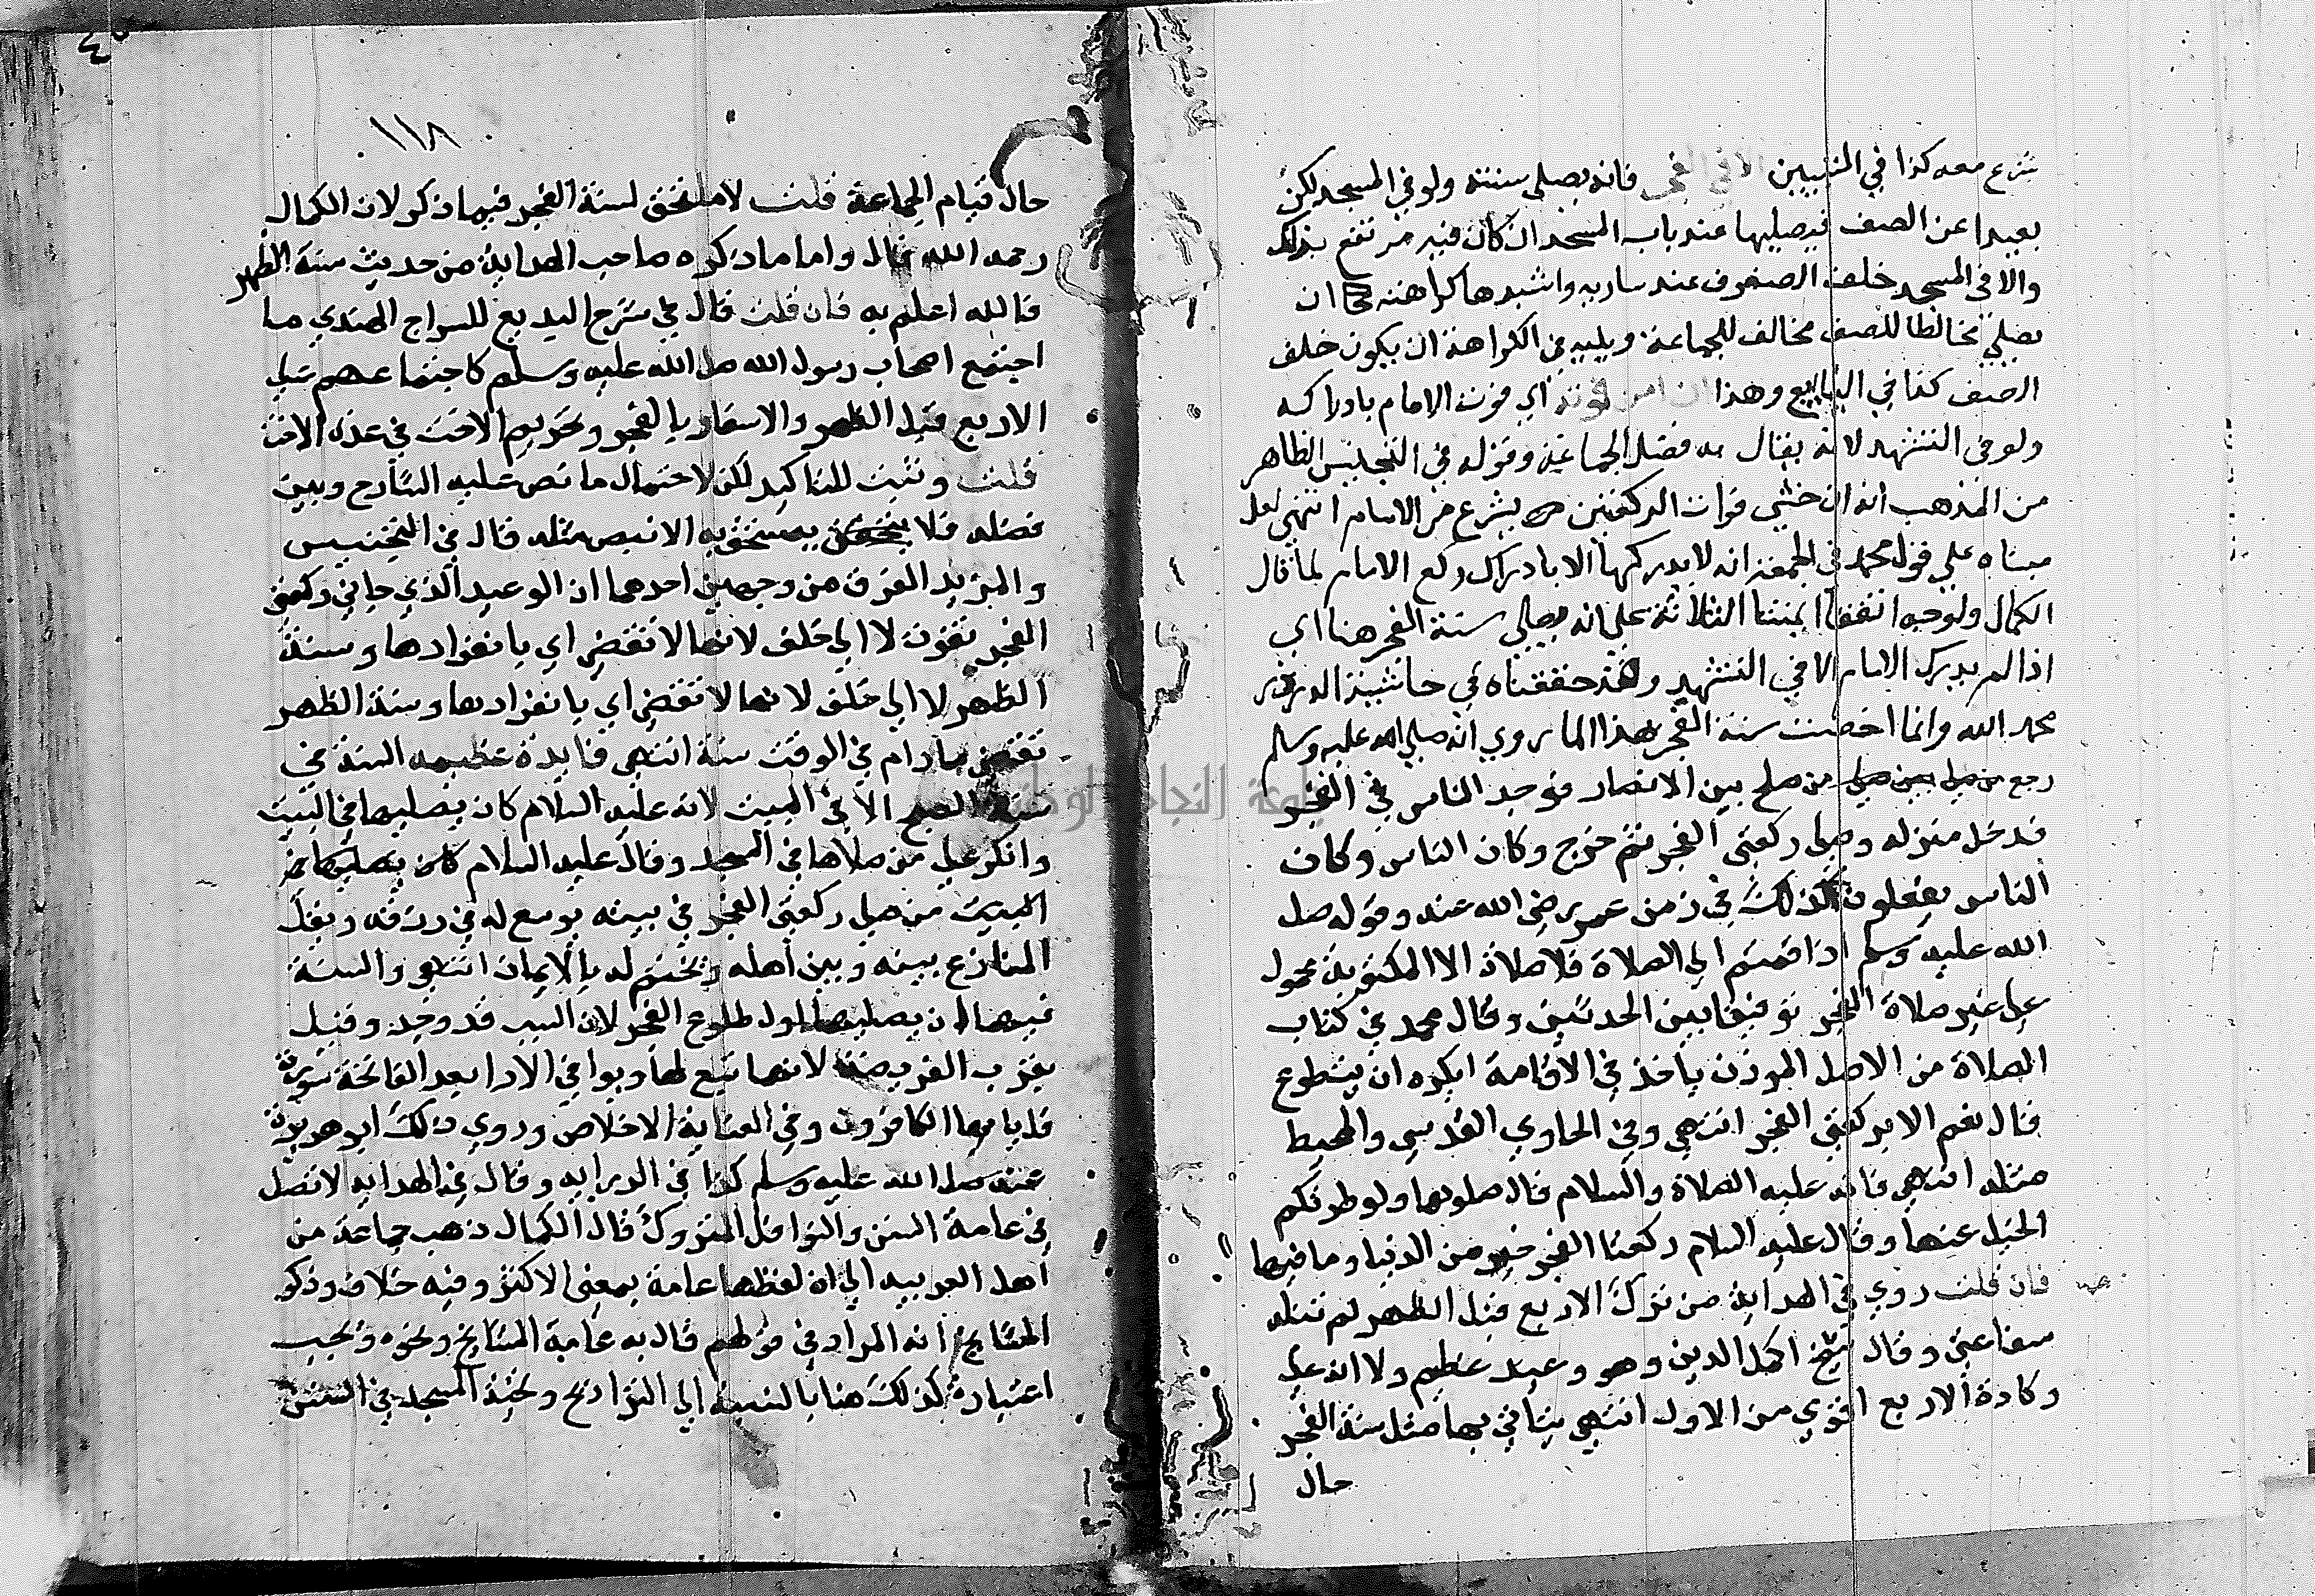 شرع معه كذا في التبيين الا في الفجر فانه يصلي سنته ولو في المسجد لكن
بعيدا عن الصف فيصليها عند باب المسجد ان كان فيه مرتفع بذلك
والا في المسجد خلف الصفوف عند ساريه واشدها كراهة ان
يصلي مخالطا للصف مخالف للجماعة ويليه في الكراهة ان يكون خلف
الصف كذا في الينابيع وهذا ان امن فوته اي فوت الامام بادراكه
ولو في التشهد لانه يقال به فضل الجماعة وقوله في التجنيس الظاهر
من المذهب انه ان خشي فوات الركعتين يشرع مع الامام انتهي لعل
مبناه علي قول محمد في الجمعة انه لا يدركها الا بادراك ركع الامام لما قال
الكمال ولوجه اتفق ايمتنا الثلاثة علي انه يصلي سنة الفجر هنا اي
اذا لم يدرك الامام الا في التشهد وقد حققناه في حاشية الدرر
محمد الله وانما اخصت سنة الفجر بهذا لما روي انه صلي الله عليه وسلم
رجع من صلح بين الانصار فوجد الناس في الفجر
فدخل منزله وصلي ركعتي الفجر ثم خرج وكان الناس وكان
الناس يفعلون كذلك في زمن عمر رضي الله عنه وقوله صل
الله عليه وسلم اذا قمتم الي الصلاة فلا صلاة الا المكتوبة محمول
علي غير صلاة الفجر توفيقا بين الحديثين وقال محمد في كتاب
الصلاة من الاصل الموذن ياخذ في الاقامة ايكره ان يتطوع
قال نعم الا بركعتي الفجر انتهي وفي الحاوي القدسي والمحيط
مثله انتهي فانه عليه الصلاة والسلام قال صلوها ولو طردتكم
الخيل عنها وقال عليه السلام ركعتا الفجر خير من الدنيا وما فيها
فان قلت روي في الهداية من ترك الاربع قبل الظهر لم تنله
شفاعتي وقال شيخ اكمل الدين وهو وعيد عظيم ولا انه علي
وكادة الاربع اقوي من الاول انتهي يتاتي بها مثل سنة الفجر
حال
١١٨
حال قيام الجماعة قلت لا ملحق لسنة الفجر فيما ذكر لان الكمال
رحمه الله قال واما ما ذكره صاحب الهداية من حديث سنة الظهر
فالله اعلم به فان قلت قال في شرح البديع للسراج الهندي ما
اجتمع اصحاب رسول الله صل الله عليه وسلم كاجتماعهم علي
الاربع قبل الظهر والاسفار بالفجر وتحريم الاخت في عدة الاخت
قلت وتثبت للتاكيد لكن لاحتمال ما نص عليه الشارح وبين
فضله فلا يستحق به الا بنص مثله قال في التجنيس
والمزيد الفرق من وجهين احدهما ان الوعيد الذي جا في ركعتي
الفجر تفوت لا الي خلف لانها لا تقضي اي بانفرادها وسنة
الظهر لا الي خلف لانها لا تقضي اي بانفرادها وسنة الظهر
تقضي مادام في الوقت سنة انتهي فايدة عظيمه السنة في
سنة الصبح الا في البيت لانه عليه السلام كان يصليها في البيت
وانكر علي من صلاها في المسجد وقال عليه السلام كان يصليها في
البيت من صلي ركعتي الفجر في بيته يوسع له في رزقه ويقل
المنازع بينه وبين اهله ويختم له بالايمان انتهي والسنة
فيهما ان يصليهما اول طلوع الفجر لان السبب قد وجد وقيل
بقرب الفريضة لانها تبع لها ويوافي الادا بعد الفاتحة سورة
قل يا ايها الكافرون وفي الثانية الاخلاص وروي ذلك ابو هريرة
عنه صل الله عليه وسلم كذا في الدرايه وقال في الهدايه لا تصل
في عامة السنن والنوافل المتروك قال الكمال ذهب جماعة من
اهل العربيه الي ان لفظها عامة بمعني الاكثر وفيه خلاف وذكر
المشايخ انه المراد في قولهم قال به عامة المشايخ ونحوه ويجب
اعتباره كذلك هنا بالنسبة الي التراويح وتحية المسجد في السنن